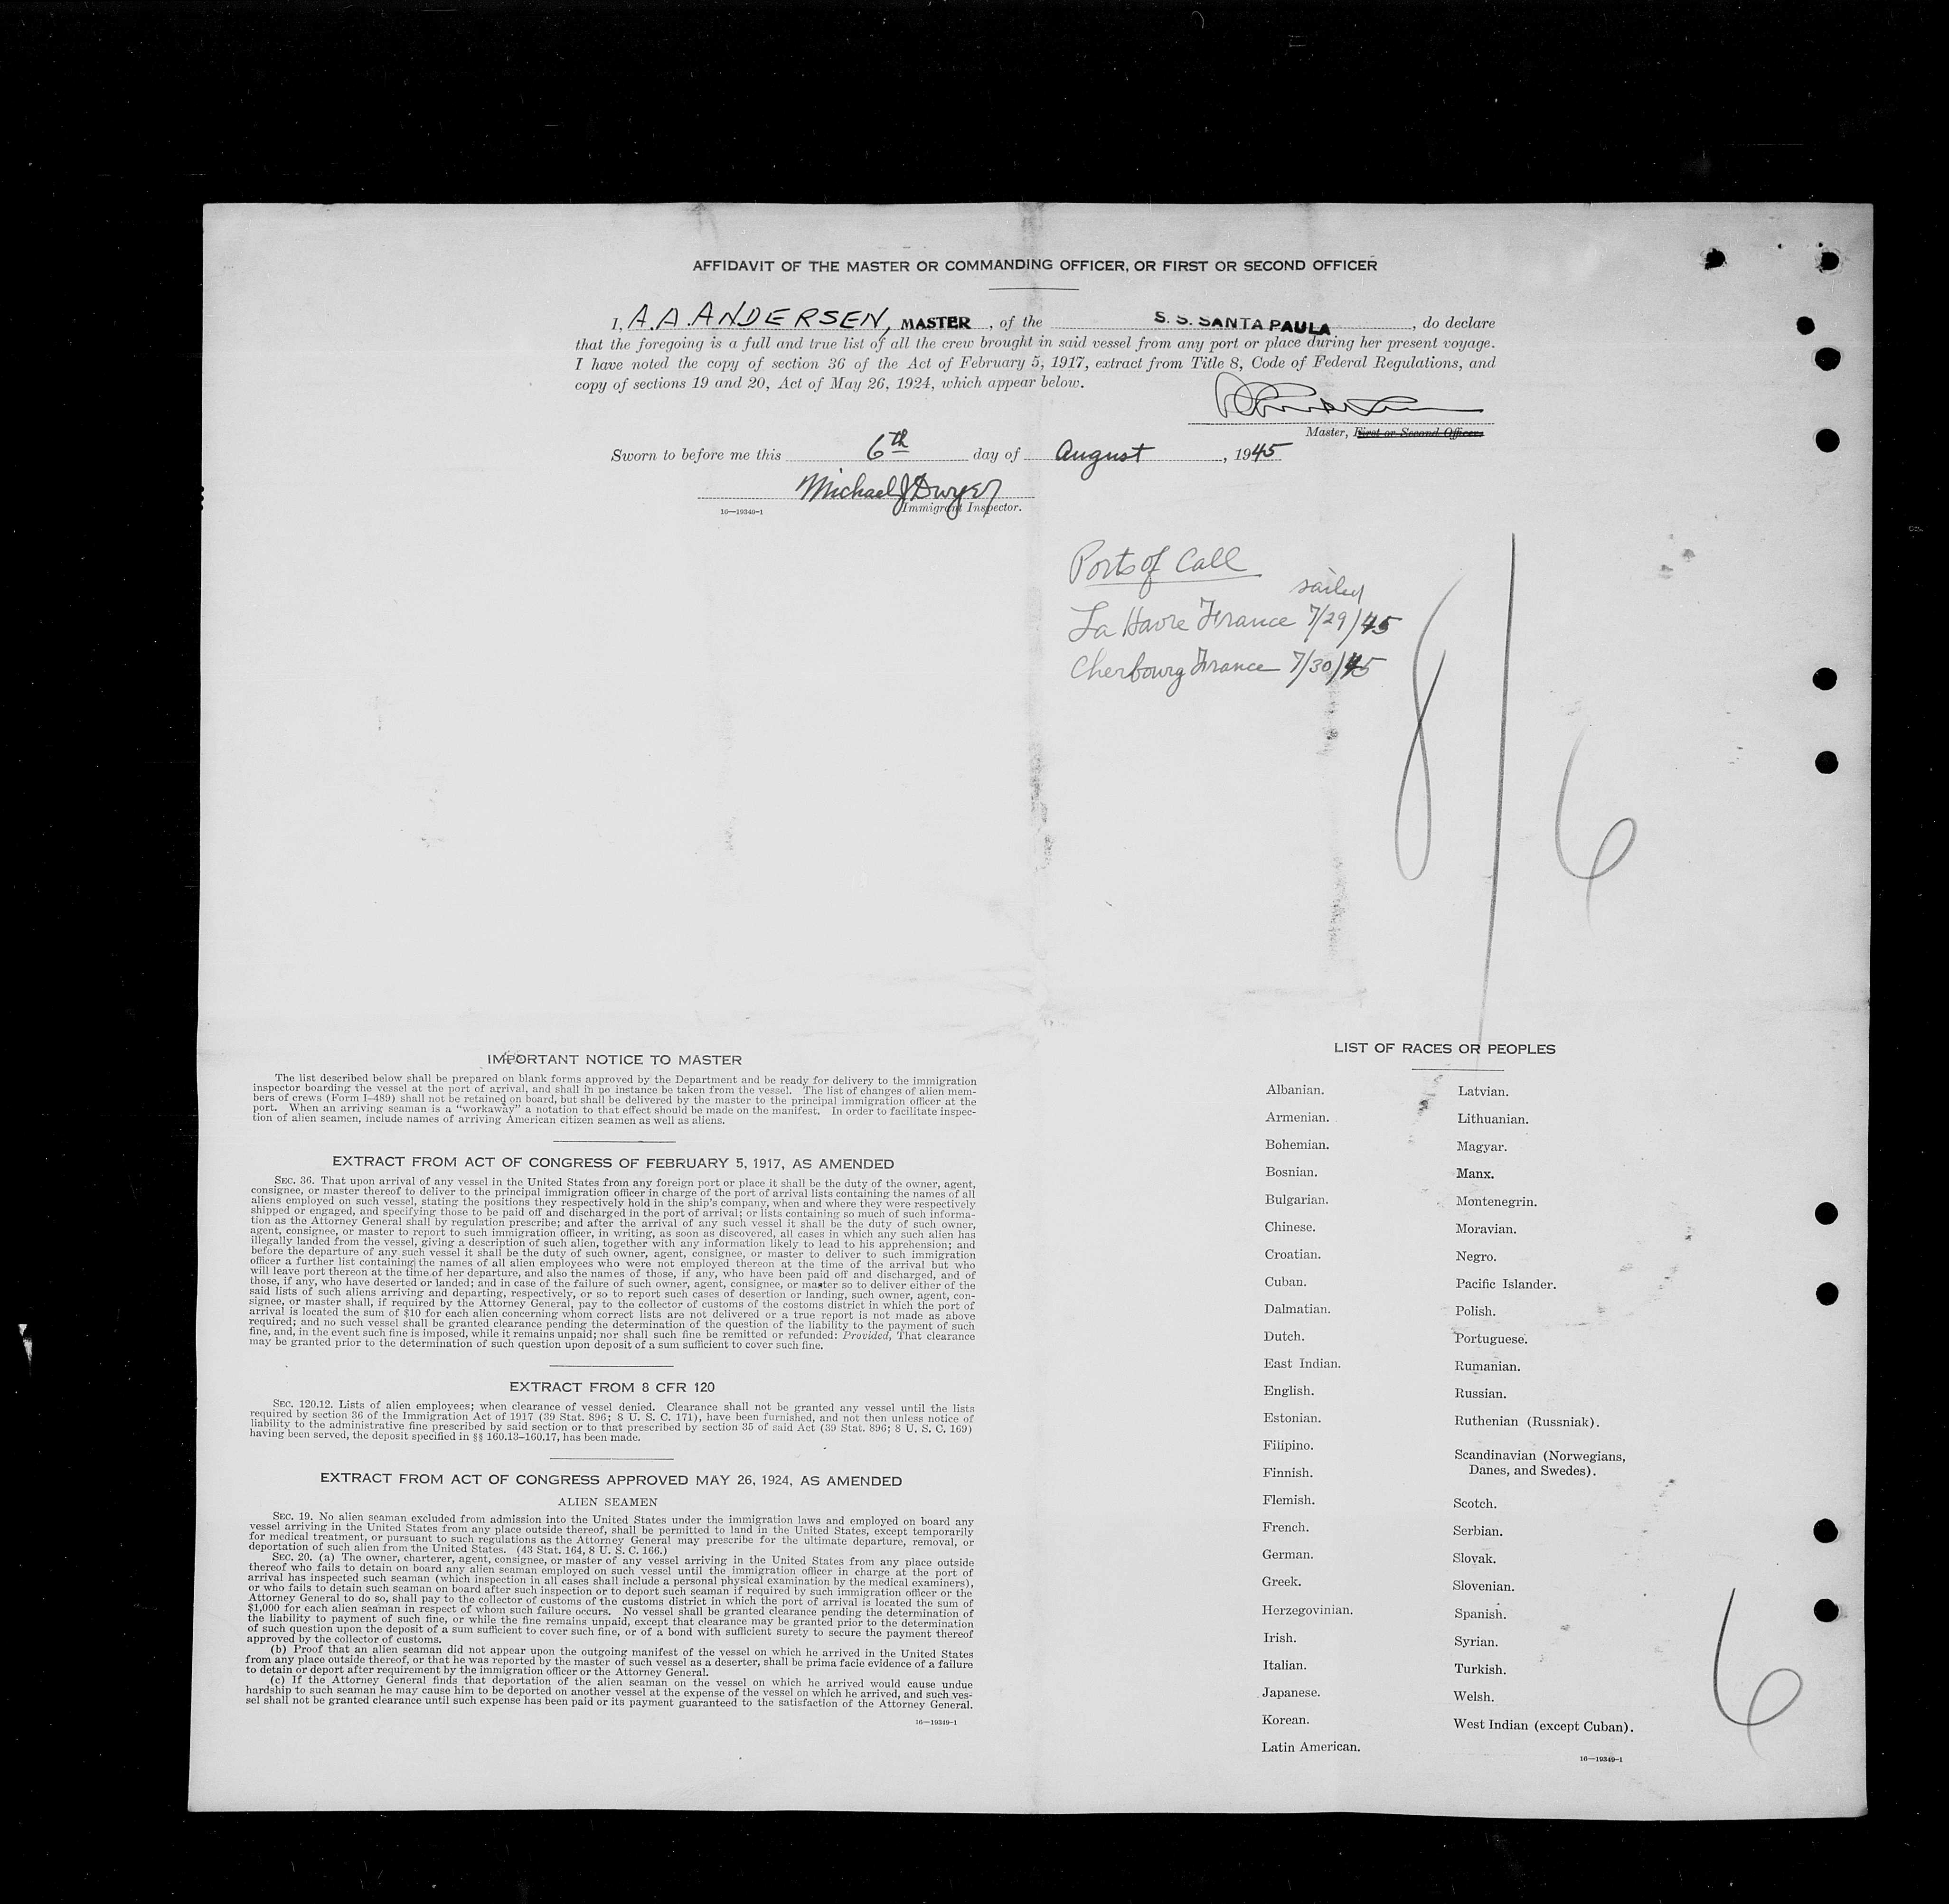 AFFIDAVIT OF THE MASTER OR COMMANDING OFFICER, OR FIRST OR SECOND OFFICER
I, A.A. ANDERSEN, MASTER, of the S. S. SANTA PAULA, do declare
that the foregoing is a full and true list of all the crew brought in said vessel from any port or place during her present voyage.
I have noted the copy of section 36 of the Act of February 5, 1917, extract from Title 8, Code of Federal Regulations, and
copy of sections 19 and 20, Act of May 26, 1924, which appear below.
Master, First or Second Officer.
Sworn to before me this 6th day of August, 1945
Michael J Dwyer
16—19349-1 Immigrant Inspector.
Ports of Call
sailed
La Havre France 7/29/45
Cherbourg France 7/30/45
8/6
IMPORTANT NOTICE TO MASTER
The list described below shall be prepared on blank forms approved by the Department and be ready for delivery to the immigration
inspector boarding the vessel at the port of arrival, and shall in no instance be taken from the vessel. The list of changes of alien mem-
bers of crews (Form I-489) shall not be retained on board, but shall be delivered by the master to the principal immigration officer at the
port. When an arriving seaman is a "workaway" a notation to that effect should be made on the manifest. In order to facilitate inspec-
tion of alien seamen, include names of arriving American citizen seamen as well as aliens.
EXTRACT FROM ACT OF CONGRESS OF FEBRUARY 5, 1917, AS AMENDED
SEC. 36. That upon arrival of any vessel in the United States from any foreign port or place it shall be the duty of the owner, agent,
consignee, or master thereof to deliver to the principal immigration officer in charge of the port of arrival lists containing the names of all
aliens employed on such vessel, stating the positions they respectively hold in the ship's company, when and where they were respectively
shipped or engaged, and specifying those to be paid off and discharged in the port of arrival; or lists containing so much of such informa-
tion as the Attorney General shall by regulation prescribe; and after the arrival of any such vessel it shall be the duty of such owner,
agent, consignee, or master to report to such immigration officer, in writing, as soon as discovered, all cases in which any such alien has
illegally landed from the vessel, giving a description of such alien, together with any information likely to lead to his apprehension; and
before the departure of any such vessel it shall be the duty of such owner, agent, consignee, or master to deliver to such immigration
officer a further list containing the names of all alien employees who were not employed thereon at the time of the arrival but who
will leave port thereon at the time of her departure, and also the names of those, if any, who have been paid off and discharged, and of
those, if any, who have deserted or landed; and in case of the failure of such owner, agent, consignee, or master so to deliver either of the
said lists of such aliens arriving and departing, respectively, or so to report such cases of desertion or landing, such owner, agent, con-
signee, or master shall, if required by the Attorney General, pay to the collector of customs of the costoms district in which the port of
arrival is located the sum of $10 for each alien concerning whom correct lists are not delivered or a true report is not made as above
required; and no such vessel shall be granted clearance pending the determination of the question of the liability to the payment of such
fine, and, in the event such fine is imposed, while it remains unpaid; nor shall such fine be remitted or refunded: Provided, That clearance
may be granted prior to the determination of such question upon deposit of a sum sufficient to cover such fine.
EXTRACT FROM 8 CFR 120
SEC. 120.12. Lists of alien employees; when clearance of vessel denied. Clearance shall not be granted any vessel until the lists
required by section 36 of the Immigration Act of 1917 (39 Stat. 896; 8 U. S. C. 171), have been furnished, and not then unless notice of
liability to the administrative fine prescribed by said section or to that prescribed by section 35 of said Act (39 Stat. 896; 8 U. S. C. 169)
having been served, the deposit specified in §§ 160.13-160.17, has been made.
EXTRACT FROM ACT OF CONGRESS APPROVED MAY 26, 1924, AS AMENDED
ALIEN SEAMEN
SEC. 19. No alien seaman excluded from admission into the United States under the immigration laws and employed on board any
vessel arriving in the United States from any place outside thereof, shall be permitted to land in the United States, except temporarily
for medical treatment, or pursuant to such regulations as the Attorney General may prescribe for the ultimate departure, removal, or
deportation of such alien from the United States. (43 Stat. 164, 8 U. S. C. 166.)
SEC. 20. (a) The owner, charterer, agent, consignee, or master of any vessel arriving in the United States from any place outside
thereof who fails to detain on board any alien seaman employed on such vessel until the immigration officer in charge at the port of
arrival has inspected such seaman (which inspection in all cases shall include a personal physical examination by the medical examiners),
or who fails to detain such seaman on board after such inspection or to deport such seaman if required by such immigration officer or the
Attorney General to do so, shall pay to the collector of customs of the customs district in which the port of arrival is located the sum of
$1,000 for each alien seaman in respect of whom such failure occurs. No vessel shall be granted clearance pending the determination of
the liability to payment of such fine, or while the fine remains unpaid, except that clearance may be granted prior to the determination
of such question upon the deposit of a sum sufficient to cover such fine, or of a bond with sufficient surety to secure the payment thereof
approved by the collector of customs.
(b) Proof that an alien seaman did not appear upon the outgoing manifest of the vessel on which he arrived in the United States
from any place outside thereof, or that he was reported by the master of such vessel as a deserter, shall be prima facie evidence of a failure
to detain or deport after requirement by the immigration officer or the Attorney General.
(c) If the Attorney General finds that deportation of the alien seaman on the vessel on which he arrived would cause undue
hardship to such seaman he may cause him to be deported on another vessel at the expense of the vessel on which he arrived, and such ves-
sel shall not be granted clearance until such expense has been paid or its payment guaranteed to the satisfaction of the Attorney General.
16—19349-1
LIST OF RACES OR PEOPLES
Albanian.
Armenian.
Bohemian.
Bosnian.
Bulgarian.
Chinese.
Croatian.
Cuban.
Dalmatian.
Dutch.
East Indian.
English.
Estonian.
Filipino.
Finnish.
Flemish.
French.
German.
Greek.
Herzegovinian.
Irish.
Italian.
Japanese.
Korean.
Latin American.
Latvian.
Lithuanian.
Magyar.
Manx.
Montenegrin.
Moravian.
Negro.
Pacific Islander.
Polish.
Portuguese.
Rumanian.
Russian.
Ruthenian (Russniak).
Scandinavian (Norwegians,
Danes, and Swedes).
Scotch.
Serbian.
Slovak.
Slovenian.
Spanish.
Syrian.
Turkish.
Welsh.
West Indian (except Cuban).
16—19349-1
6